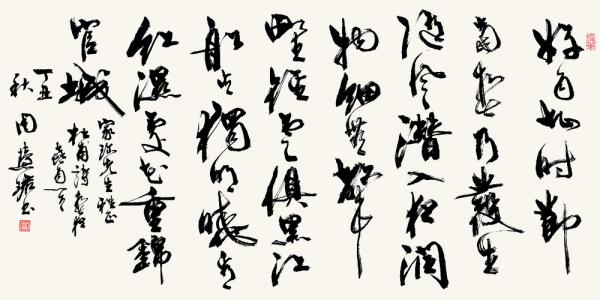 好雨知時節
當春乃發生
随風潛入夜潤
物細無聲
野徑雲俱黑江
船火獨明曉看
紅濕處花重錦
官城
家珍先生雅正
杜甫詩春夜
喜雨一首
丁丑
秋
周慧珺书